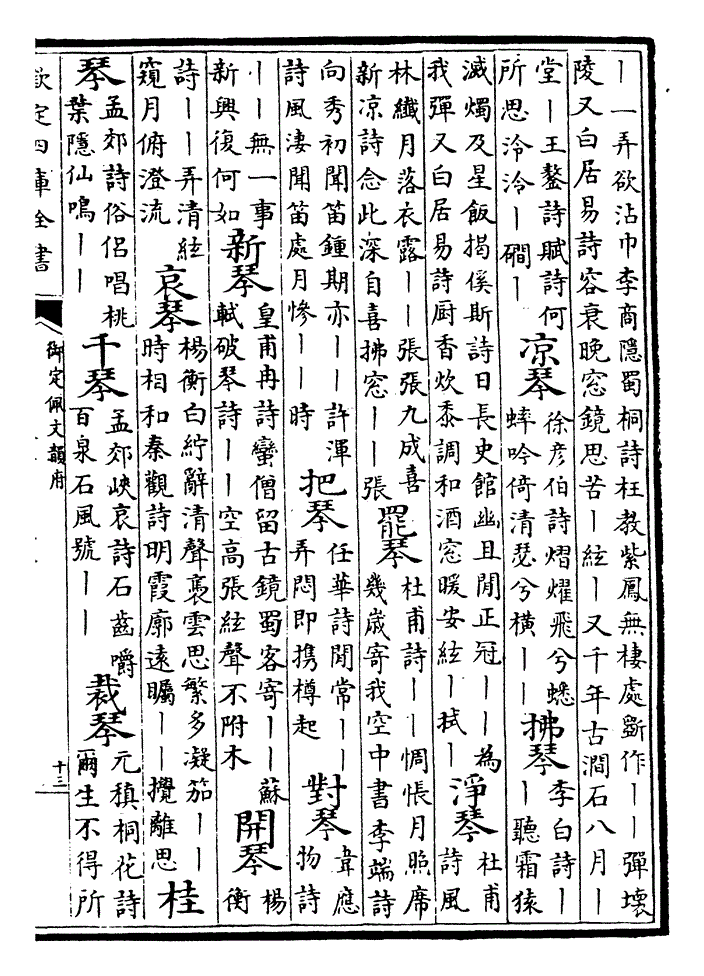 ｜一弄欲沾巾李商隱蜀桐詩枉教紫鳳無棲處斵作｜｜彈壞
陵又白居易詩容衰晚窓鏡思苦｜絃｜又千年古澗石八月｜
堂｜王鏊詩賦詩何
所思泠泠｜磵｜
涼琴
徐彦伯詩熠燿飛兮蟋
蟀吟倚清瑟兮橫｜｜
拂琴
李白詩｜
｜聽霜猿
滅燭及星飯揭傒斯詩日長史館幽且閒正冠｜｜為
我彈又白居易詩厨香炊黍調和酒窓暖安絃｜拭｜
淨琴
杜甫
詩風
林纖月落衣露｜｜張張九成喜
新凉詩念此深自喜拂窓｜｜張
罷琴
杜甫詩｜｜惆悵月照席
幾歲寄我空中書李端詩
向秀初聞笛鍾期亦｜｜許渾
詩風淒聞笛處月慘｜｜時
把琴
任華詩閒常｜｜
弄悶即携樽起
對琴
韋應
物詩
｜｜無一事
新興復何如
新琴
皇甫冉詩蠻僧留古鏡蜀客寄｜｜蘇
軾破琴詩｜｜空高張絃聲不附木
開琴
楊
衡
詩｜｜弄清絃
窺月俯澄流
哀琴
楊衡白紵辭清聲裛雲思繁多凝笳｜｜
時相和秦觀詩明霞廓遠矚｜｜攪離思
桂
琴
孟郊詩俗侣唱桃
葉隱仙鳴｜｜
千琴
孟郊峽哀詩石齒嚼
百泉石風號｜｜
裁琴
元稹桐花詩
爾生不得所
欽定四庫全書
御定佩文韻府
十三